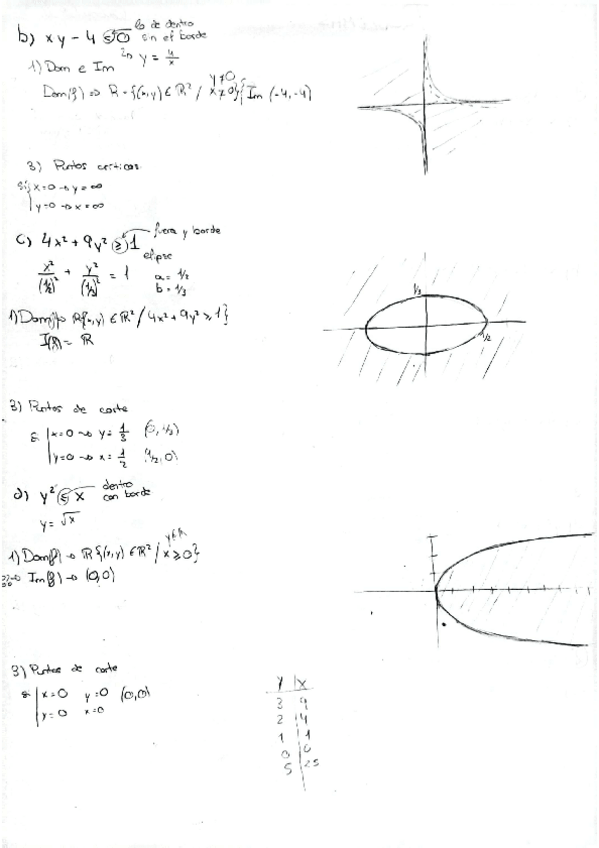 b) xy - 4 ≤ 0 lo de dentro
sin el borde
y = 4/x
1) Dom e Im
Dom(f) => R - {(x,y) ∈ R² / y≠0 x≠0} Im (-4,-4)
3) Puntos criticos
Si x=0 → y=∞
y=0 → x=∞
c) 4x² + 9y² ≥ 1 fuera y borde
elipse
x²/(1/2)² + y²/(1/3)² = 1 a = 1/2
b = 1/3
1/3
1/2
1) Dom(f) → R{(x,y) ∈ R² / 4x² + 9y² ≥ 1}
= R
3) Puntos de corte
x=0 → y = 1/3 (0, 1/3)
y=0 → x = 1/2 (1/2, 0)
d) y² ≤ x dentro
con borde
y = √x
1) Dom(f) → R{(x,y) ∈ R² / x ≥ 0}
Im(f) → (0,0)
3) Puntos de corte
x=0 y=0 (0,0)
y=0 x=0
y x
3 9
2 4
1 1
0 0
5 25